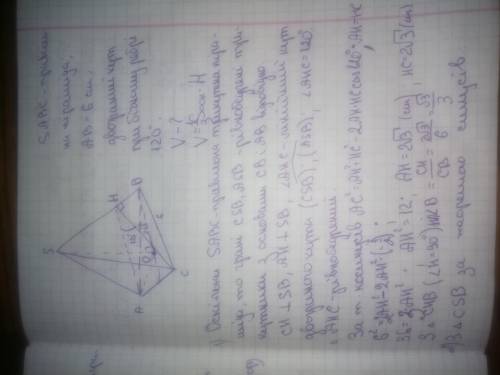 SABC - правиль-
на піраміда,
AB = 6 см,
двогранний кут
при бічному ребрі
120°.
V - ?
V = 1/3 Sосн · H
1) Оскільки SABC - правильна трикутна піра-
міда, то грані CSB, ASB рівнобедрені три-
кутники з основами CB, AB,
CH ⊥ SB, AH ⊥ SB, ∠AHC - лінійний кут
двогранного кута (CSB), (ASB), ∠AHC = 120°
△AHC - рівнобедрений.
За т. косинусів AC² = AH² + HC² - 2AH·HC cos 120°, AH = HC
6² = 2AH² - 2AH² · (-1/2);
36 = 3AH²; AH² = 12; AH = 2√3 (см), HC = 2√3 (см)
З △CHB (∠H = 90°) sin∠B = CH/CB = 2√3/6 = √3/3;
З △CSB за теоремою синусів
S
A
B
C
H